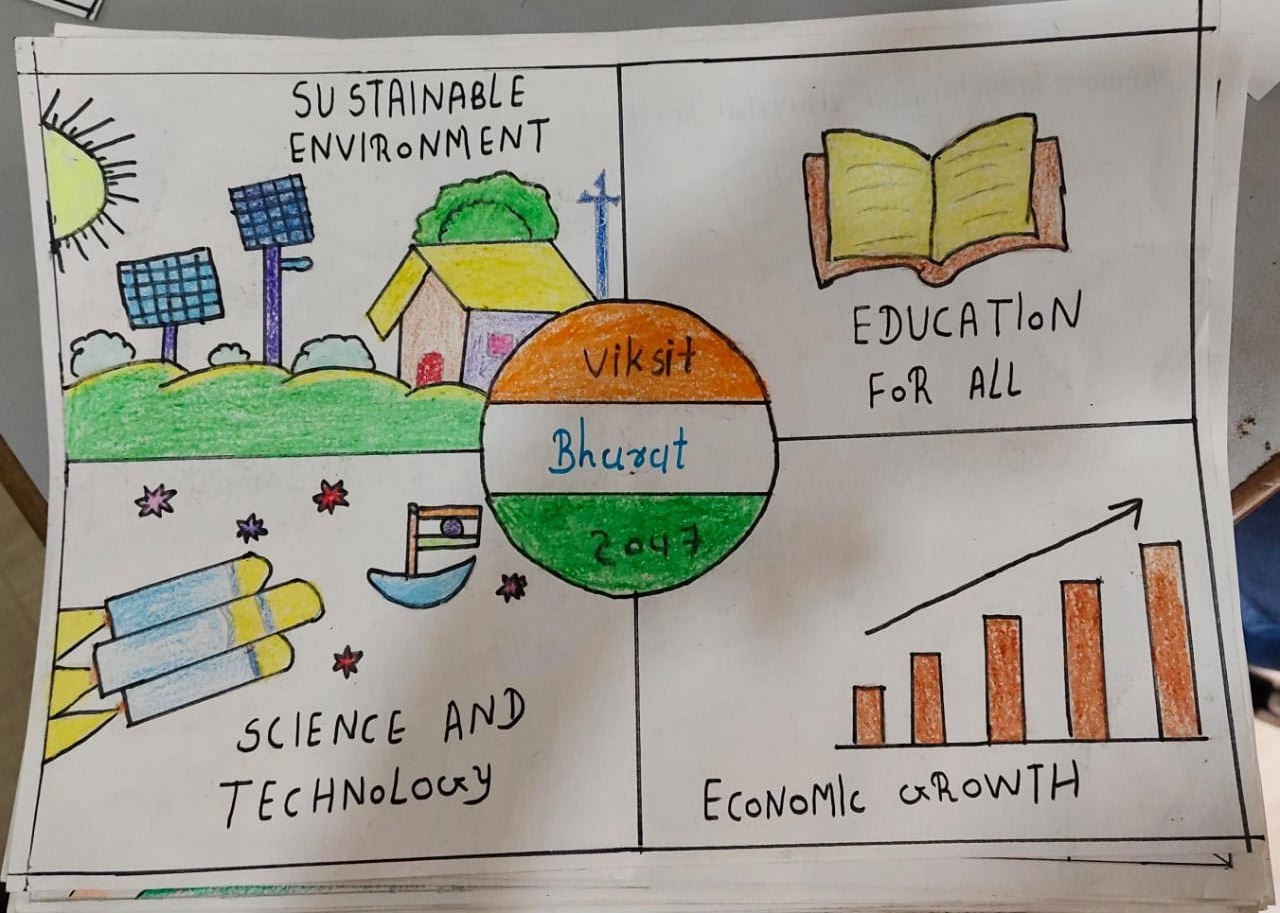 SUSTAINABLE
ENVIRONMENT
EDUCATION
FOR ALL
Viksit
Bharat
2047
SCIENCE AND
TECHNOLOGY
ECONOMIC GROWTH